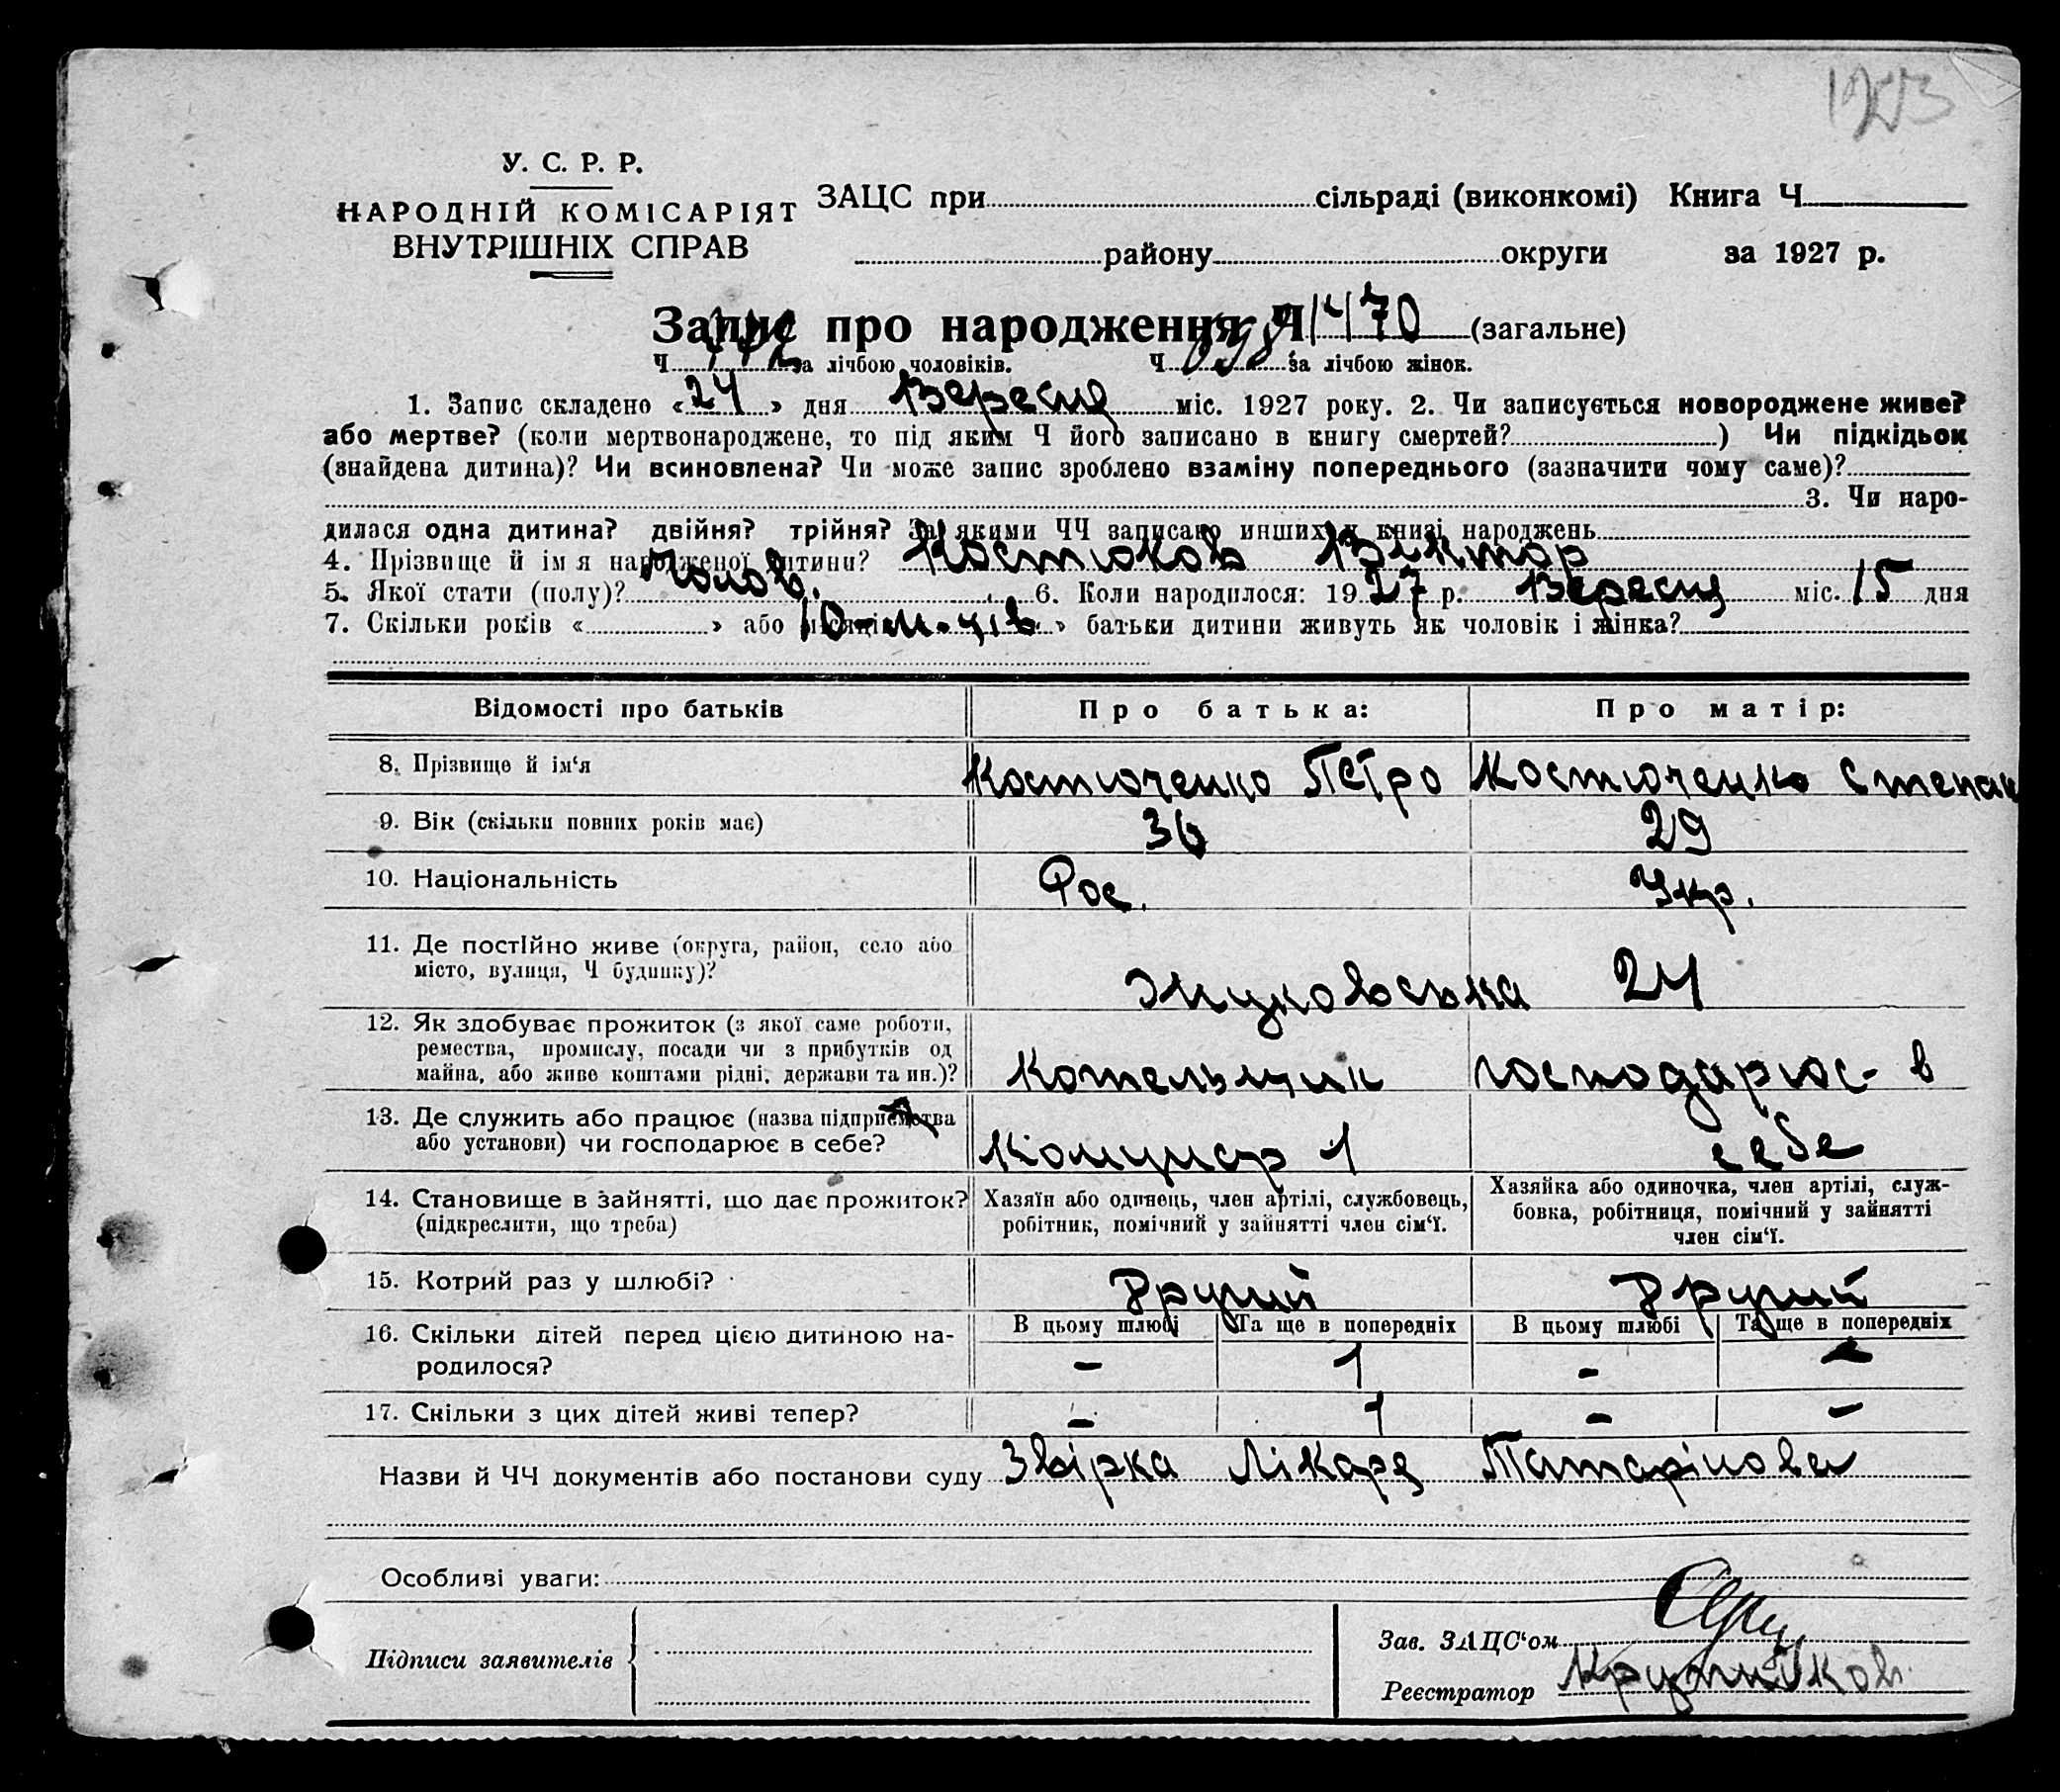 У. С. Р. Р.
НАРОДНІЙ КОМІСАРІЯТ
ВНУТРІШНІХ СПРАВ
ЗАЦС при сільраді (виконкомі) Книга Ч
району округи за 1927 р.
Запис про народження Ч 1470 (загальне)
Ч за лічбою чоловіків. Ч 698 за лічбою жінок.
1. Запис складено «24» дня Вересня міс. 1927 року. 2. Чи записується новороджене живе?
або мертве? (коли мертвонароджене, то під яким Ч його записано в книгу смертей? ) Чи підкідьок
(знайдена дитина)? Чи всиновлена? Чи може запис зроблено взаміну попереднього (зазначити чому саме)?
3. Чи наро-
дилася одна дитина? двійня? трійня? За якими ЧЧ записано инших у книзі народжень
4. Прізвище й ім я народженої дитини? Костюков Віктор
5. Якої стати (полу)? Чолов. 6. Коли народилося: 1927 р. Вересня міс. 15 дня
7. Скільки років « » або місяців « 10-м-ців » батьки дитини живуть як чоловік і жінка?
Відомості про батьків Про батька: Про матір:
8. Прізвище й ім‘я Костюченко Петро Костюченко Степан
9. Вік (скільки повних років має) 36 29
10. Національність Рос. Укр.
11. Де постійно живе (округа, район, село або
місто, вулиця, Ч будинку)? 24
12. Як здобуває прожиток (з якої саме роботи,
ремества, промислу, посади чи з прибутків од
майна, або живе коштами рідні, держави та ин.)? Котельщик господарює в
13. Де служить або працює (назва підприємства
або установи) чи господарює в себе? 1 себе
14. Становище в зайнятті, що дає прожиток?
(підкреслити, що треба)
Хазяїн або одинець, член артілі, службовець,
робітник, помічний у зайнятті член сім‘ї.
Хазяйка або одиночка, член артілі, служ-
бовка, робітниця, помічний у зайнятті
член сім‘ї.
15. Котрий раз у шлюбі? Другий Другий
16. Скільки дітей перед цією дитиною на-
родилося?
В цьому шлюбі Та ще в попередніх В цьому шлюбі Та ще в попередніх
- 1 - -
17. Скільки з цих дітей живі тепер? - 1 - -
Назви й ЧЧ документів або постанови суду Звірка Лікаря Татарінова
Особливі уваги:
Підписи заявителів
Зав. ЗАЦС‘ом
Реєстратор